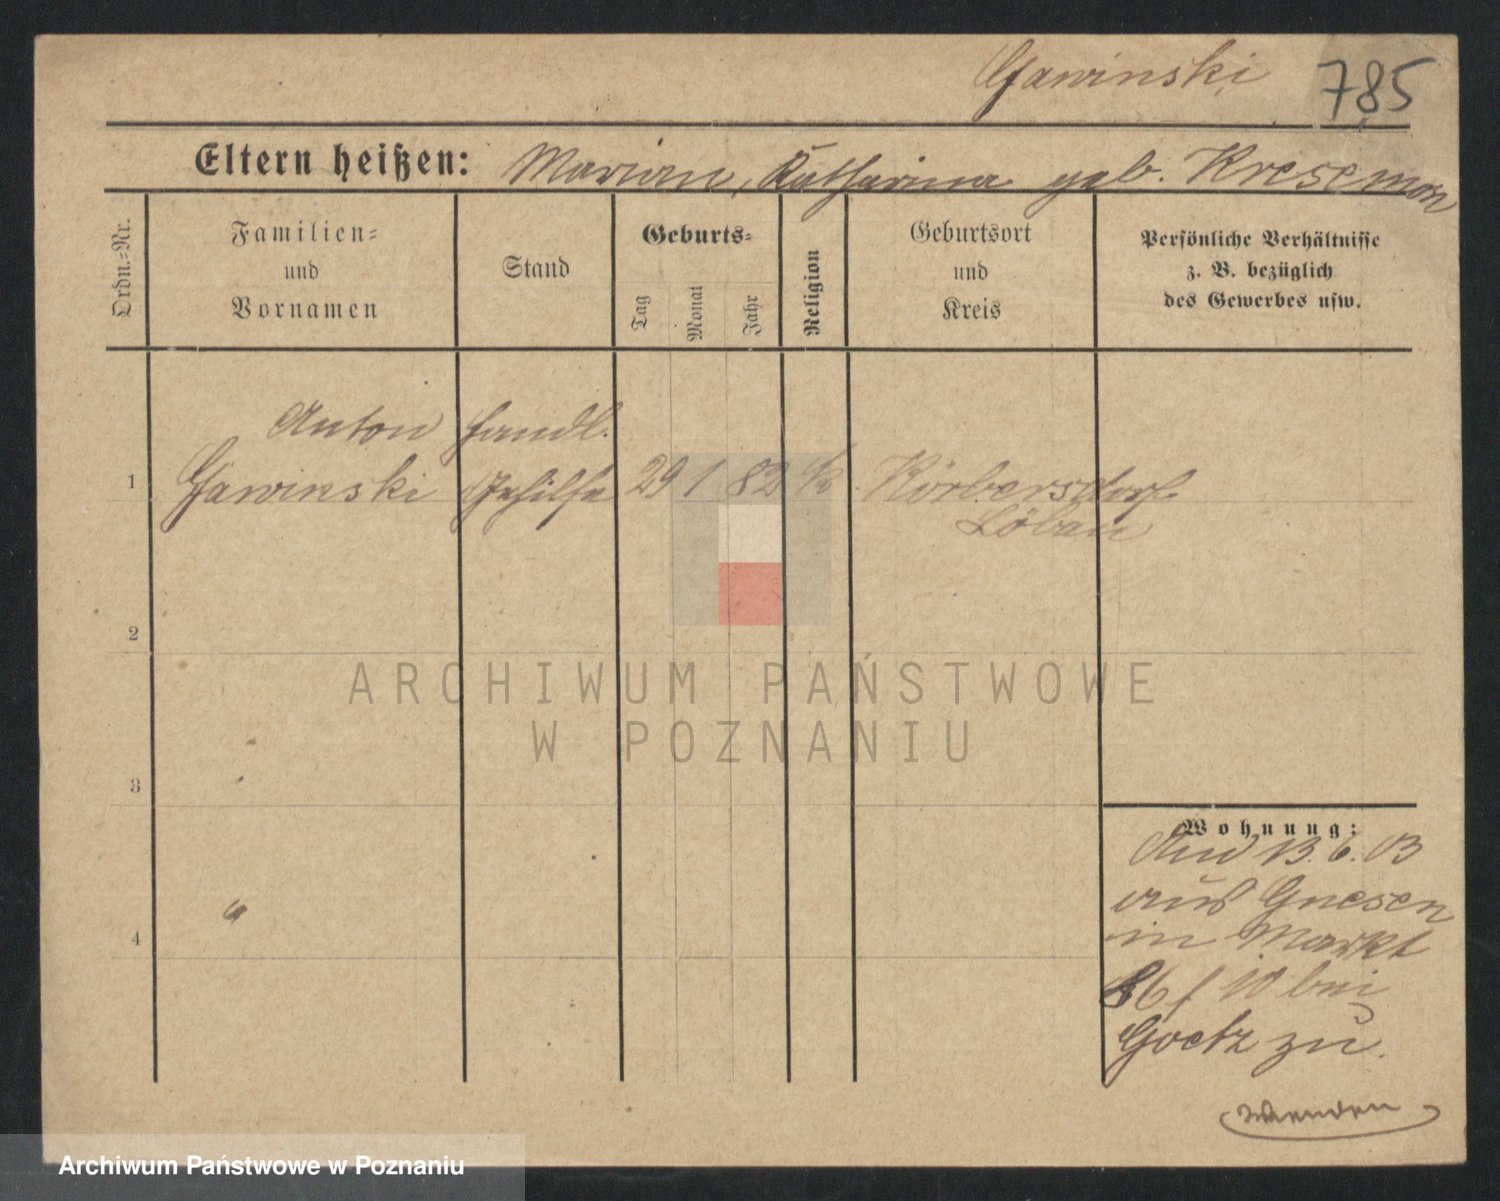 Gawinski 785
Eltern heißen: Marian, Katharina geb. Kresemon
Ordn.-Nr.
Familien-
und
Vornamen
Stand
Geburts-
Tag
Monat
Jahr
Religion
Geburtsort
und
Kreis
Persönliche Verhältnisse
z. B. bezüglich
des Gewerbes usw.
Anton Handl.
1 Gawinski Gehilfe 29 1 82 k. Körbersdorf
Löbau
2
3
4
Wohnung:
13. 6. 03
aus Gnesen
in Markt
86 f 10 bei
Goetz zu.
Wenden
ARCHIWUM PAŃSTWOWE
W POZNANIU
Archiwum Państwowe w Poznaniu